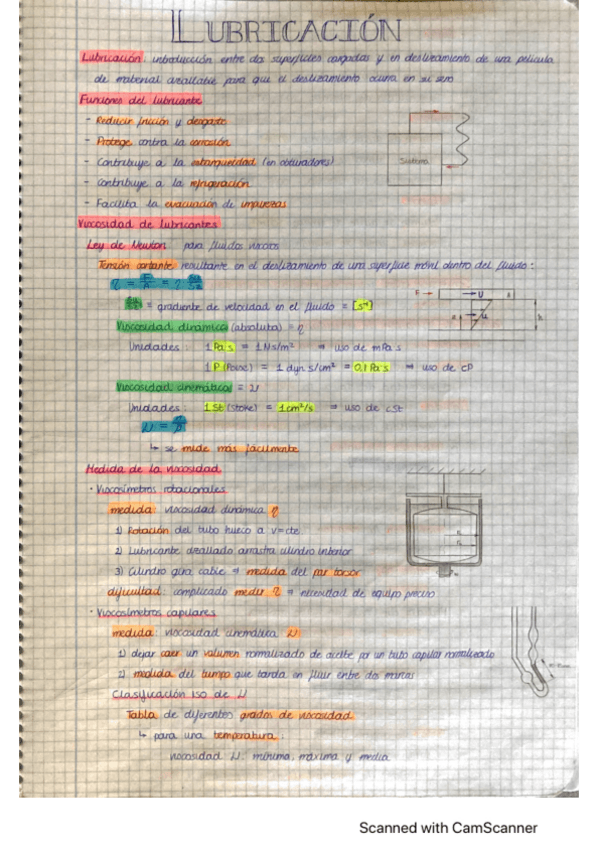 LUBRICACIÓN
Lubricación: introducción entre dos superficies cargadas y en deslizamiento de una película
de material cizallable para que el deslizamiento ocurra en su seno
Funciones del lubricante
- Reducir fricción y desgaste
- Protege contra la corrosión
- Contribuye a la estanqueidad (en obturadores)
Sistema
- Contribuye a la refrigeración
- Facilita la evacuación de impurezas
Viscosidad de lubricantes
Ley de Newton para fluidos viscosos
Tensión cortante resultante en el deslizamiento de una superficie móvil dentro del fluido:
= gradiente de velocidad en el fluido = [s⁻¹]
Viscosidad dinámica (absoluta) = η
Unidades: 1 Pa·s = 1 N·s/m² ⇒ uso de mPa·s
1 P (Poise) = 1 dyn·s/cm² = 0,1 Pa·s ⇒ uso de cP
Viscosidad cinemática = ν
Unidades: 1 St (stoke) = 1 cm²/s ⇒ uso de cSt
↳ se mide más fácilmente
Medida de la viscosidad
· Viscosímetros rotacionales
medida: viscosidad dinámica η
1) Rotación del tubo hueco a v=cte.
2) Lubricante cizallado arrastra cilindro interior
3) Cilindro gira cable ⇒ medida del par torsor
dificultad: complicado medir η ⇒ necesidad de equipo preciso
· Viscosímetros capilares
medida: viscosidad cinemática ν
1) dejar caer un volumen normalizado de aceite por un tubo capilar normalizado
2) medida del tiempo que tarda en fluir entre dos marcas
Clasificación ISO de ν
Tabla de diferentes grados de viscosidad
↳ para una temperatura:
viscosidad ν: mínima, máxima y media
Scanned with CamScanner